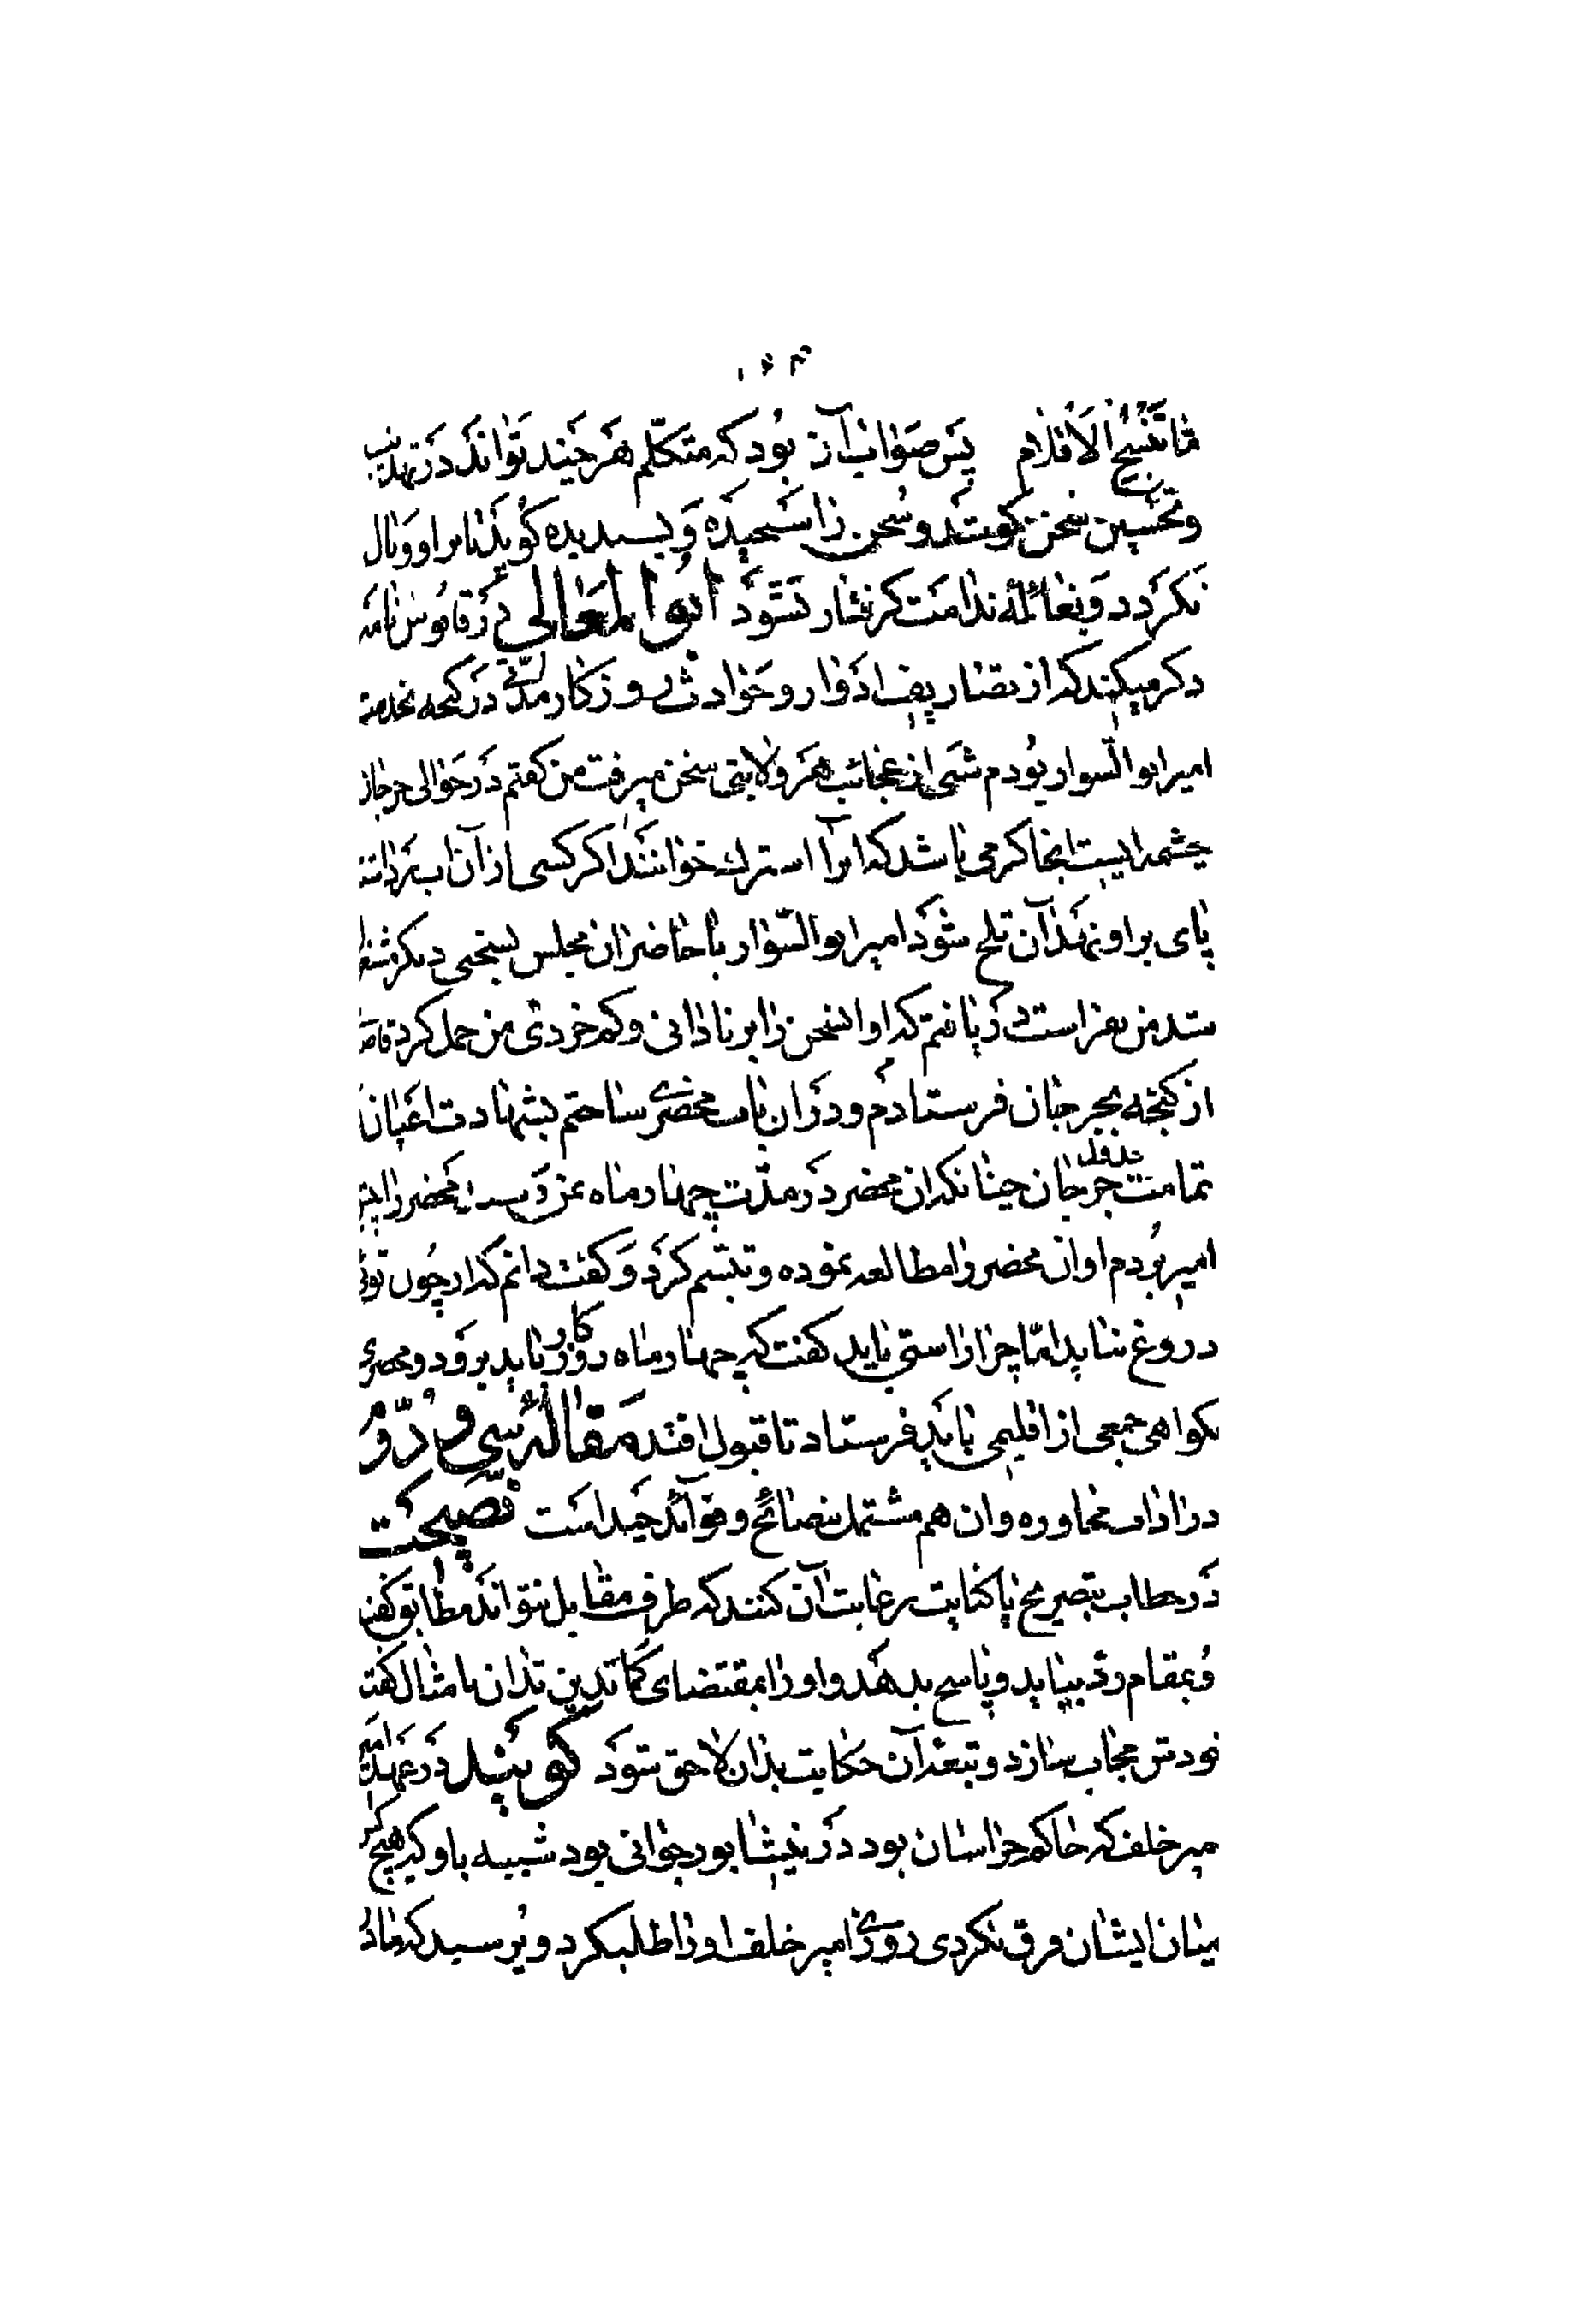 ۱۶۳
ما تنسج الأقلام پس صواب آن بود که متکلّم هر چند تواند در تهذیب
و تحسین سخن کوشد و سخن را سنجیده و پسندیده کوید تا بر او وبال
نکردد و بغائلۀ ندامت کرفتار نشود ابوالمعالی در قابوس نامه
ذکر میکند که از تصاریف ادوار و حوادث روزکار مدّتی در کنجه بخدمت
امیر ابوالسّوار بودم شبی از عجائب هر ولایتی سخن میرفت من کفتم در حوالی جرجان
چشمه ایست انجا کرمی باشد که انرا استرك خوانند اکر کسی از آن اب بردارد
پای بر او نهد آن تلخ شود امیر ابوالسّوار با حاضران مجلس بسخنی دیکر مشغول
شد من بفراست دریافتم که او انسخن را بر نادانی و کم خردی من حمل کرد قاصد
از کنجه بجرجان فرستادم و در ان باب محضری ساختم بشهادت اعیان
تمامت جرجان چنانکه ان محضر در مدّت چهار ماه بمن رسید محضر را پیش
امیر بردم او ان محضر را مطالعه نموده و تبسّم کرد و کفت دانم که از چون توئی
دروغ نیاید امّا چرا راستی باید کفت که چهار ماه روزکار باید برود و محضری
بکواهی جمعی از اقلیمی باید فرستاد تا قبول افتد مقالۀ سی و دوّم
در اداب محاوره و ان هم مشتمل بنصائح و فوائد چند است نصیحت
در خطاب بتصریح یا کنایت رعایت آن کنند که طرف مقابل نتواند مطابق کفت
و بمقام ردّ بیاید و پاسخ بدهد و او را بمقتضای کما تدین تدان بامثال کفته
خودش مجاب سازد و تبعۀ آن حکایت بدان لاحق شود کویند در عهد امیر
میر خلف که حاکم خراسان بود در نیشابور جوانی بود شبیه باو که هیچکس
میان ایشان فرق نکردی روزی امیر خلف او را طلب کرد و پرسید که مادر